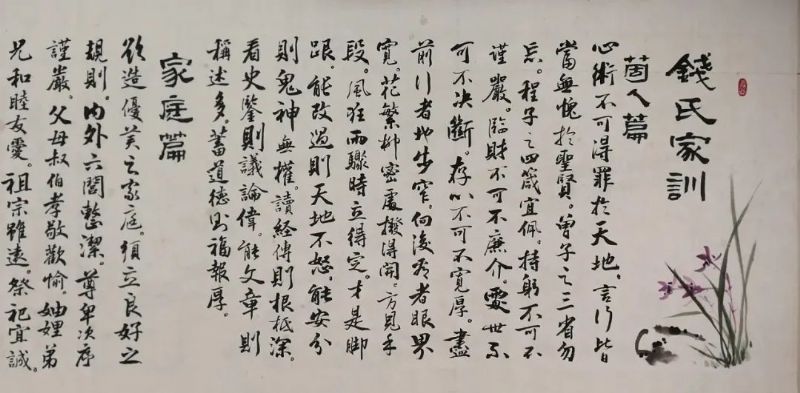 錢氏家訓
箇人篇
心術不可得罪於天地,言行皆
當無愧於聖賢。曾子之三省勿
忘。程子之四箴宜佩。持躬不可不
謹嚴。臨財不可不廉介。處世不
可不决斷。存心不可不寬厚。盡
前行者地步窄。向後看者眼界
寬。花繁柳密處撥得開。方見手
段。風狂雨驟時立得定。才是脚
跟。能改過則天地不怒。能安分
則鬼神無權。讀經傳則根柢深。
看史鑒則議論偉。能文章則
稱述多。蓄道德則福報厚。
家庭篇
欲造優美之家庭。須立良好之
規則。內外六閭整潔。尊卑次序
謹嚴。父母叔伯孝敬歡愉。妯娌弟
兄和睦友愛。祖宗雖遠。祭祀宜誠。